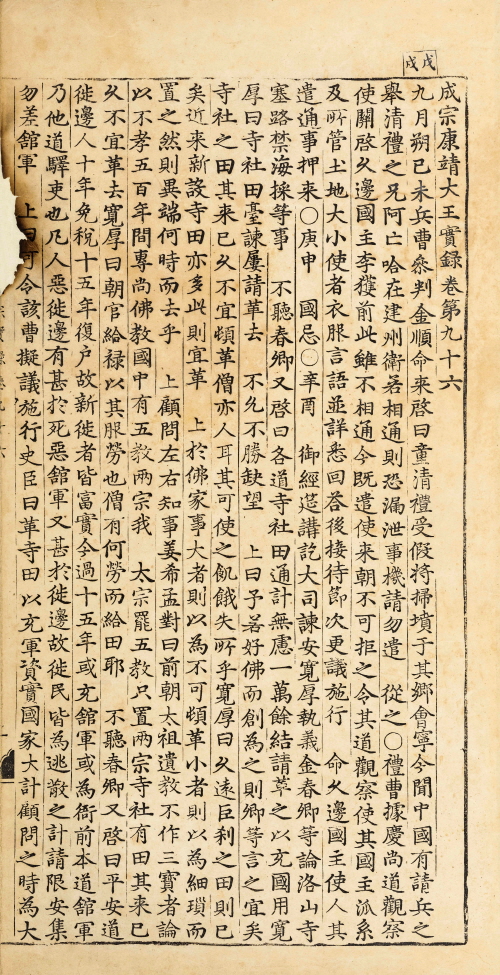 戊戌
成宗康靖大王實錄卷第九十六
九月朔己未兵曹參判金順命來啓曰童清禮受假將掃墳于其鄉會寧今聞中國有請兵之
舉清禮之兄阿亡哈在建州衛若相通則恐漏泄事機請勿遣　從之○禮曹據慶尚道觀察
使關啓久邊國主李獲前此雖不相通今既遣使來朝不可拒之令其道觀察使其國主派系
及所管土地大小使者衣服言語並詳悉回答後接待節次更議施行　命久邊國主使人其
遣通事押來○庚申　國忌○辛酉　御經筵講訖大司諫安寬厚執義金春卿等論洛山寺
塞路禁海採等事　不聽春卿又啓曰各道寺社田通計無慮一萬餘結請革之以充國用寬
厚曰寺社田臺諫屢請革去　不允不勝缺望　上曰予若好佛而創為之則卿等言之宜矣
寺社之田其來已久不宜頓革僧亦人耳其可使之飢餓失所乎寬厚曰久遠巨利之田則已
矣近來新設寺田亦多此則宜革　上於佛家事大者則以為不可頓革小者則以為細瑣而
置之然則異端何時而去乎　上顧問左右知事姜希孟對曰前朝太祖遺教不作三寶者論
以不孝五百年間專尚佛教國中有五教兩宗我　太宗罷五教只置兩宗寺社有田其來已
久不宜革去寬厚曰朝官給祿以其服勞也僧有何勞而給田耶　不聽春卿又啓曰平安道
徙邊人十年免稅十五年復戶故新徙者皆富實今過十五年或充館軍或為衙前本道館軍
乃他道驛吏也凡人惡徙邊有甚於死惡館軍又甚於徙邊故徙民皆為逃散之計請限安集
勿差館軍　上曰可令該曹擬議施行史臣曰革寺田以充軍資實國家大計顧問之時為大